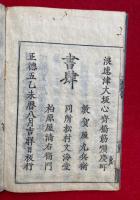 浪速津大坂心斎橋筋順慶町
書肆
敦賀屋九兵衛
同所松村文海堂
柏原屋清右衛門
正徳五乙未暦八月吉祥日板行